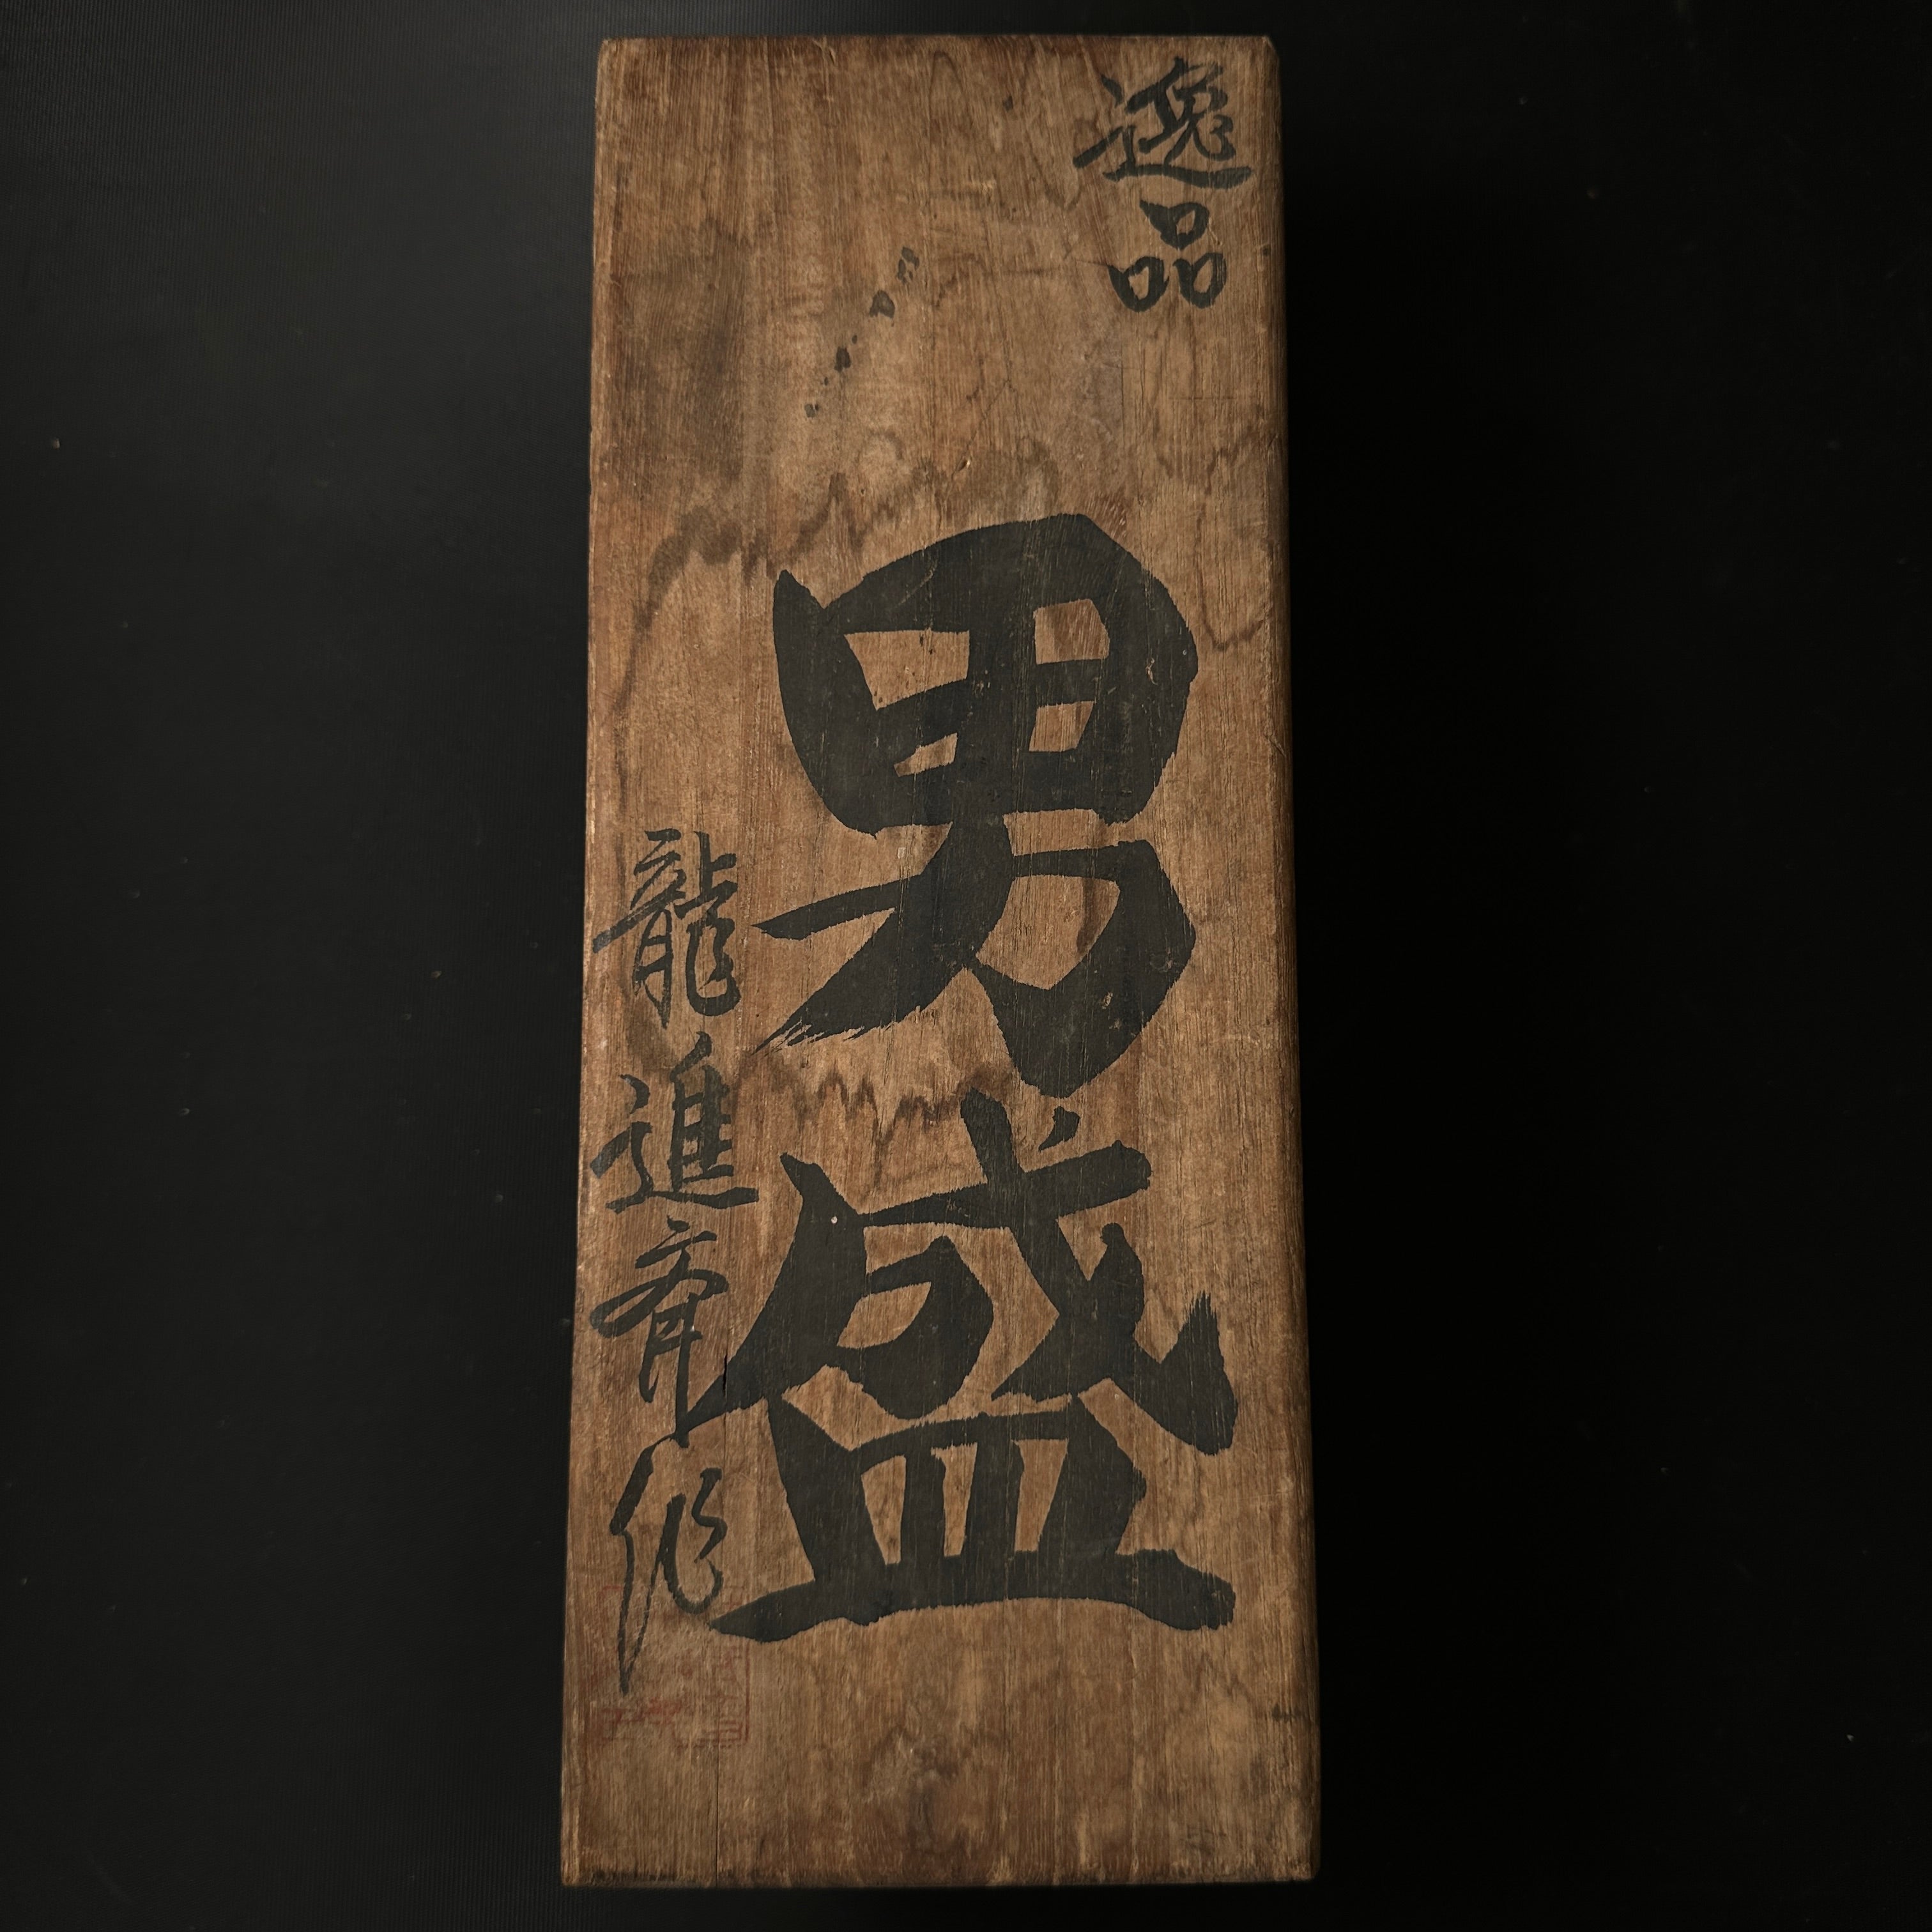 逸品
男盛
龍進斎作